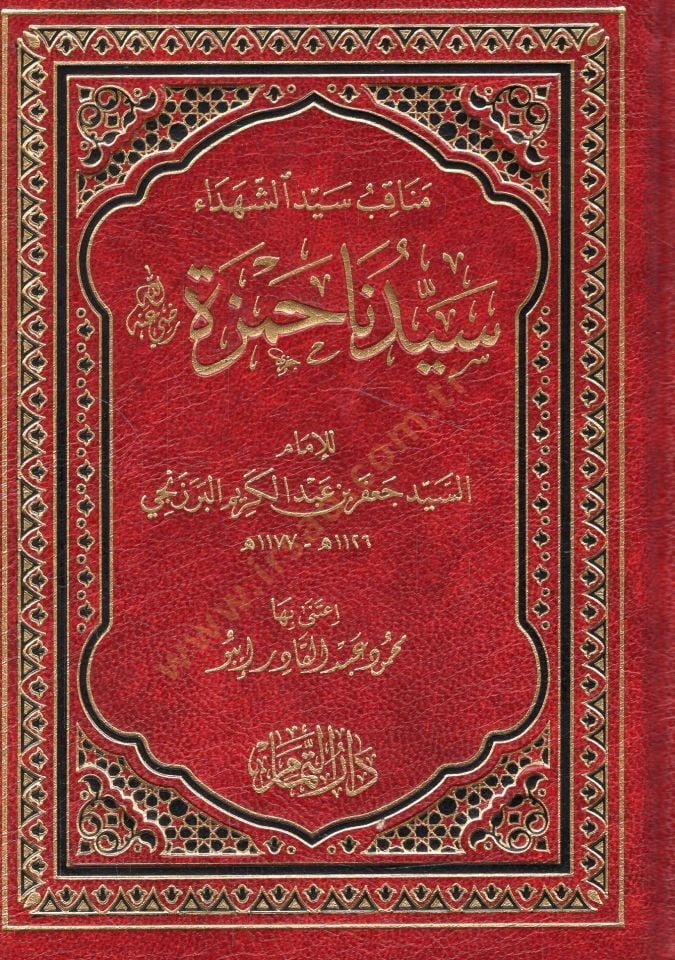 مَنَاقِبُ سَيِّد الشُّهَدَاء
سَيِّدُنَا حَمْزَة
رضي الله عنه
للإمَام
السَيِّد جَعْفَر بن عَبْد الكَرِيم البَرزَنجي
١١٢٦هـ - ١١٧٧هـ
اعْتَنَى بِهَا
محمُود عَبْد القَادِر إيبُو